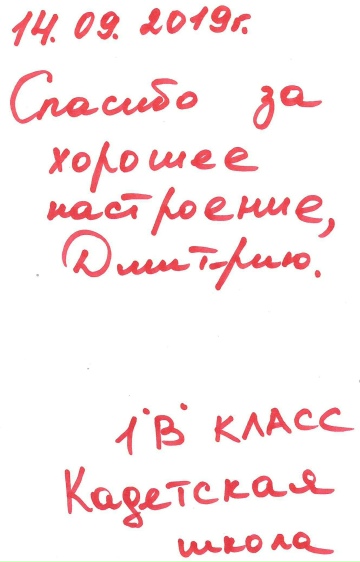 14.09.2019г.
Спасибо за
хорошее
настроение,
Дмитрию.
1"В" КЛАСС
Кадетская
школа